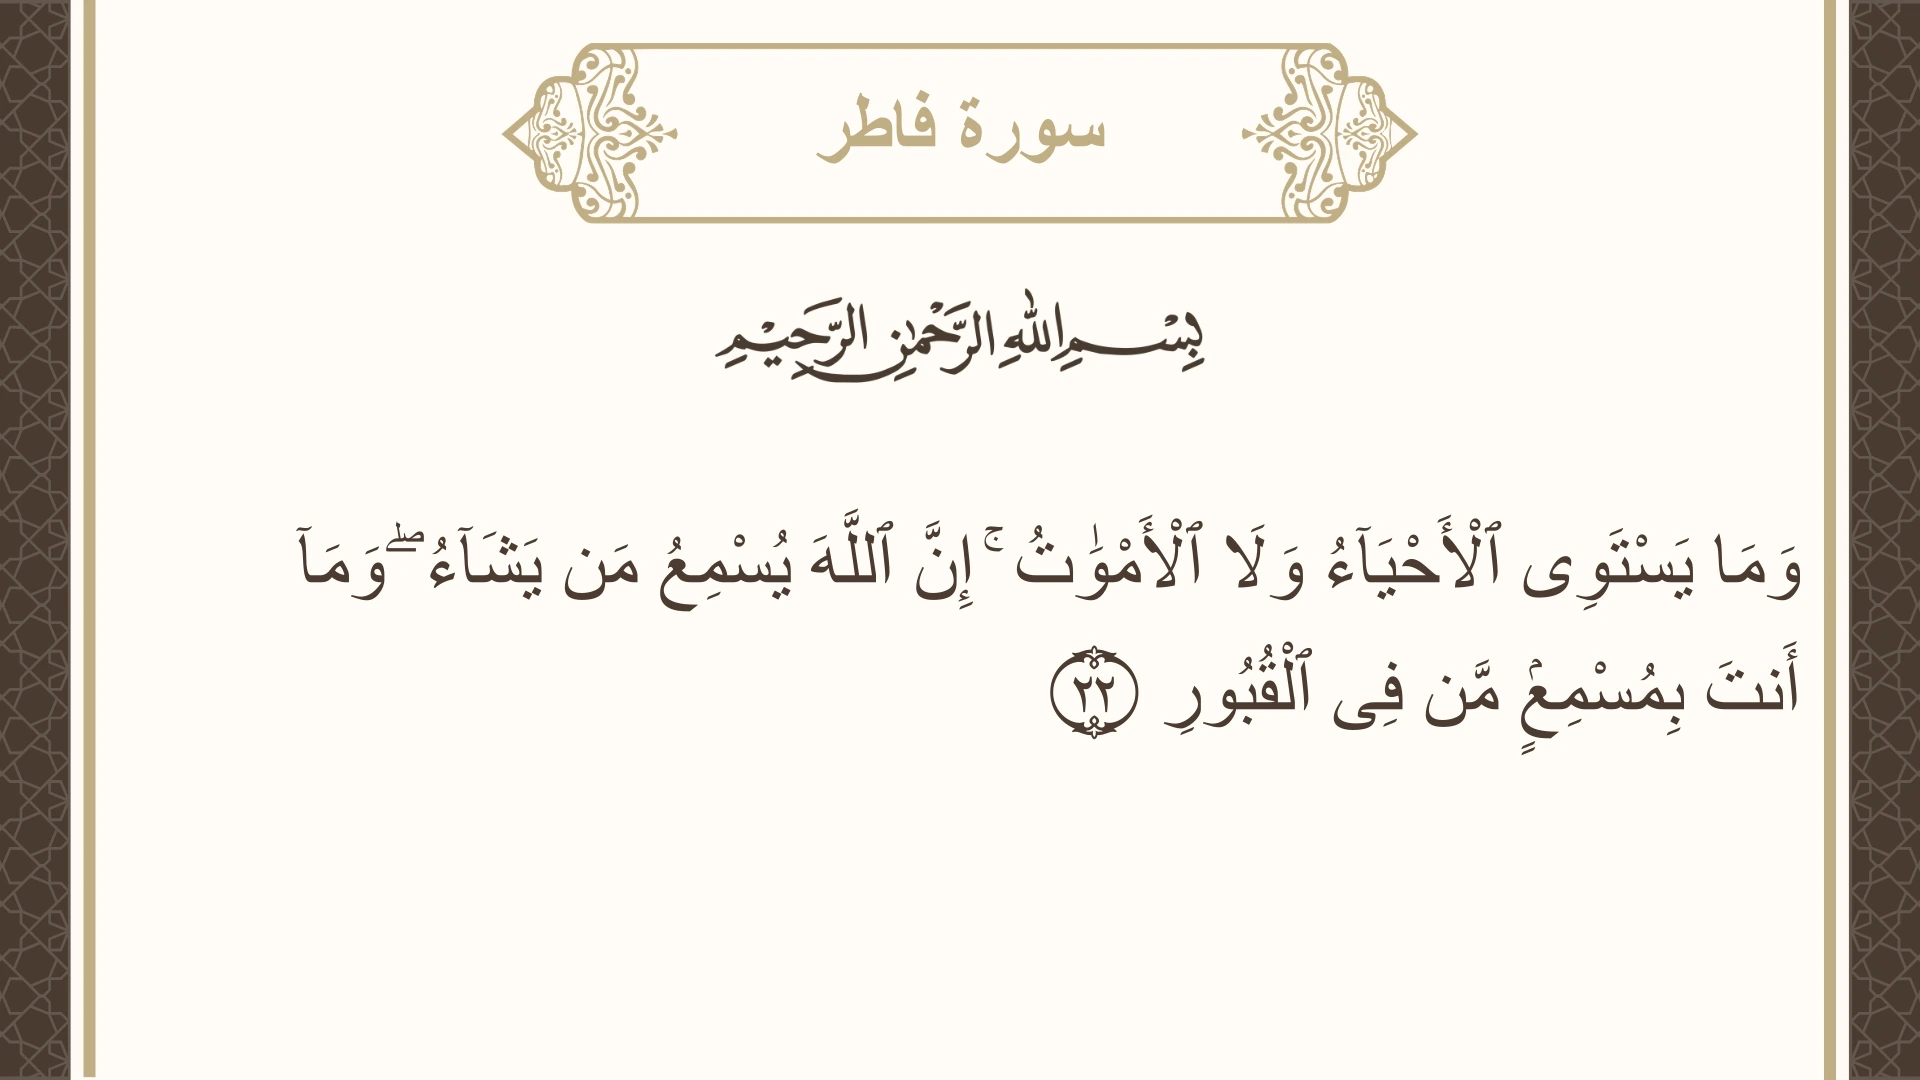 سورة فاطر
بِسْمِ اللهِ الرَّحْمٰنِ الرَّحِيْمِ
وَمَا يَسْتَوِى ٱلْأَحْيَآءُ وَلَا ٱلْأَمْوَٰتُ ۚ إِنَّ ٱللَّهَ يُسْمِعُ مَن يَشَآءُ ۖ وَمَآ
أَنتَ بِمُسْمِعٍۢ مَّن فِى ٱلْقُبُورِ ٢٢